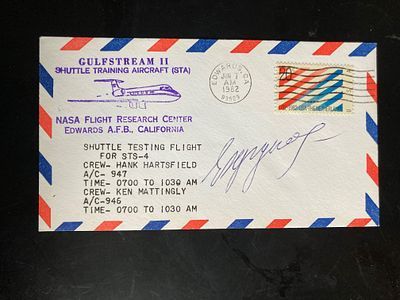 GULFSTREAM II
SHUTTLE TRAINING AIRCRAFT (STA)
EDWARDS, CA
JUN 7
AM
1982
93523
20
NASA FLIGHT RESEARCH CENTER
EDWARDS A.F.B., CALIFORNIA
SHUTTLE TESTING FLIGHT
FOR STS-4
CREW- HANK HARTSFIELD
A/C- 947
TIME- 0700 TO 1030 AM
CREW- KEN MATTINGLY
A/C-946
TIME- 0700 TO 1030 AM